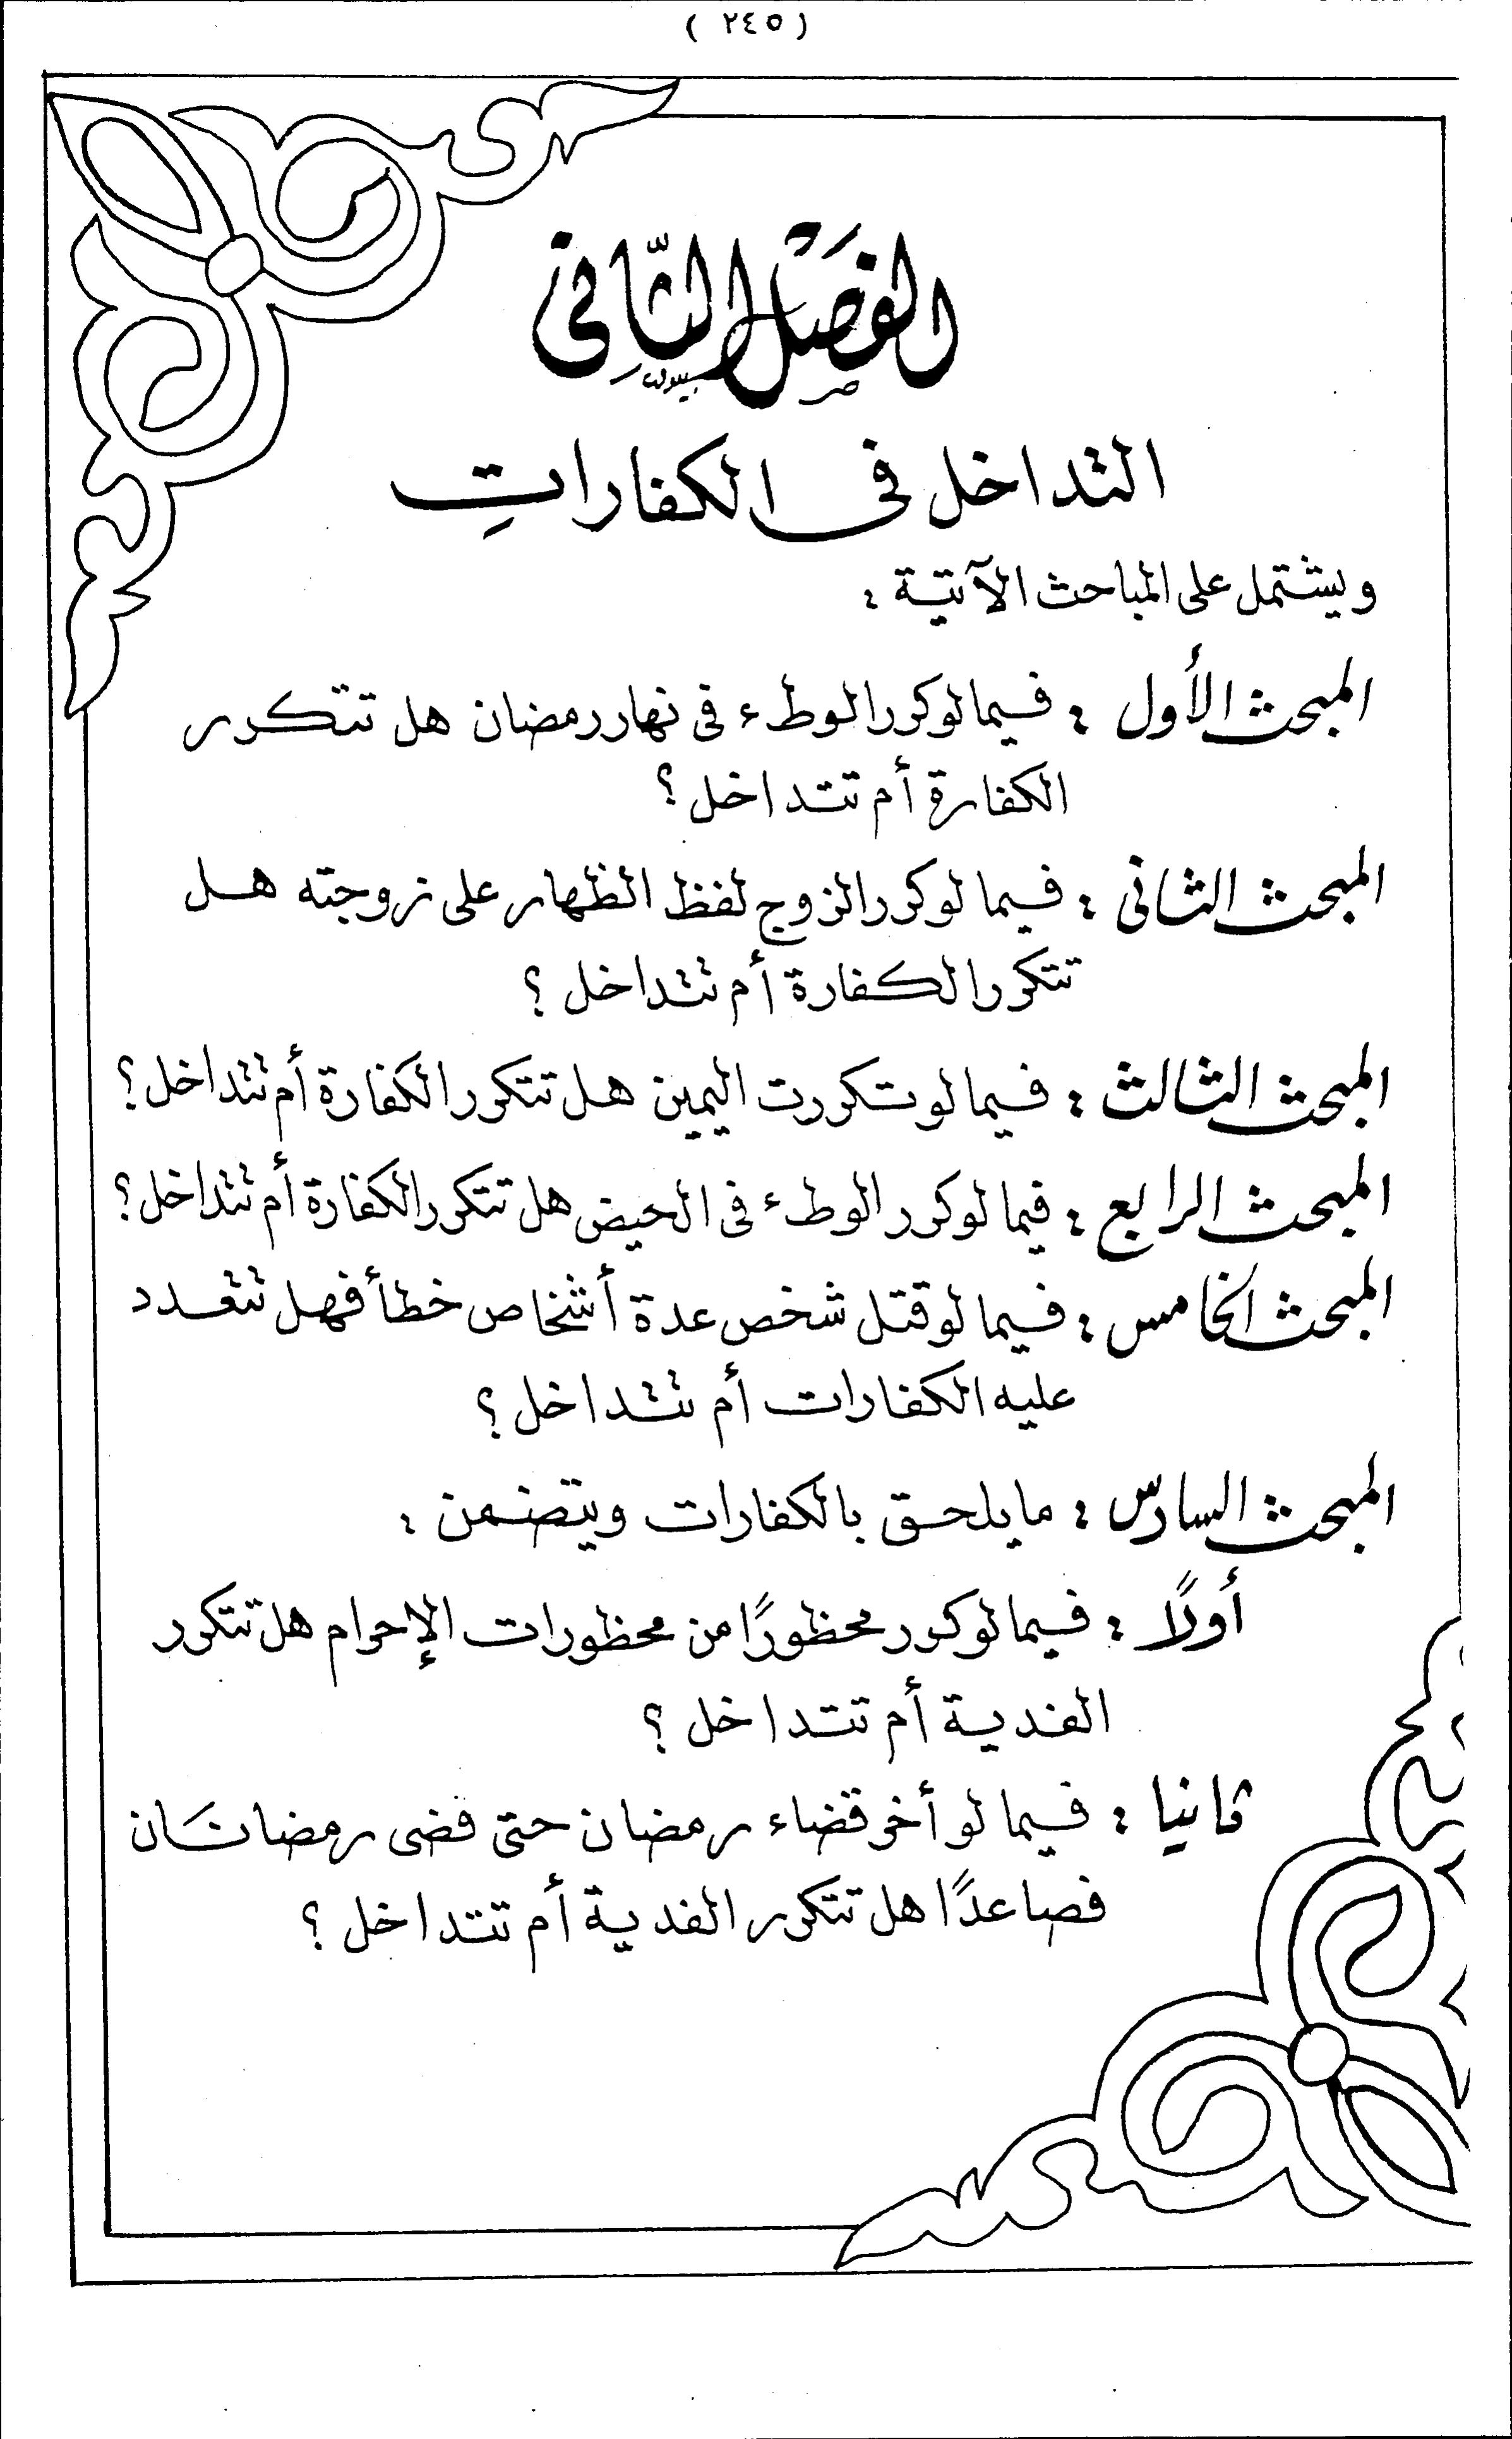 ( ٢٤٥ )
الفَصْل الثّاني
التداخل فى الكفاراتِ
ويشتمل على المباحث الآتية :
المبحث الأول : فيما لو كرر الوطء فى نهار رمضان هل تتكرر
الكفارة أم تتداخل ؟
المبحث الثانى : فيما لو كرر الزوج لفظ الظهار على زوجته هل
تتكرر الكفارة أم تتداخل ؟
المبحث الثالث : فيما لو تكررت اليمين هل تتكرر الكفارة أم تتداخل ؟
المبحث الرابع : فيما لو كرر الوطء فى الحيض هل تتكرر الكفارة أم تتداخل ؟
المبحث الخامس : فيما لو قتل شخص عدة أشخاص خطأ فهل تتعدد
عليه الكفارات أم تتداخل ؟
المبحث السادس : ما يلحق بالكفارات ويتضمن :
أولاً : فيما لو كرر محظورًا من محظورات الإحرام هل تتكرر
الفدية أم تتداخل ؟
ثانيا : فيما لو أخر قضاء رمضان حتى مضى رمضانَان
فصاعدًا هل تتكرر الفدية أم تتداخل ؟